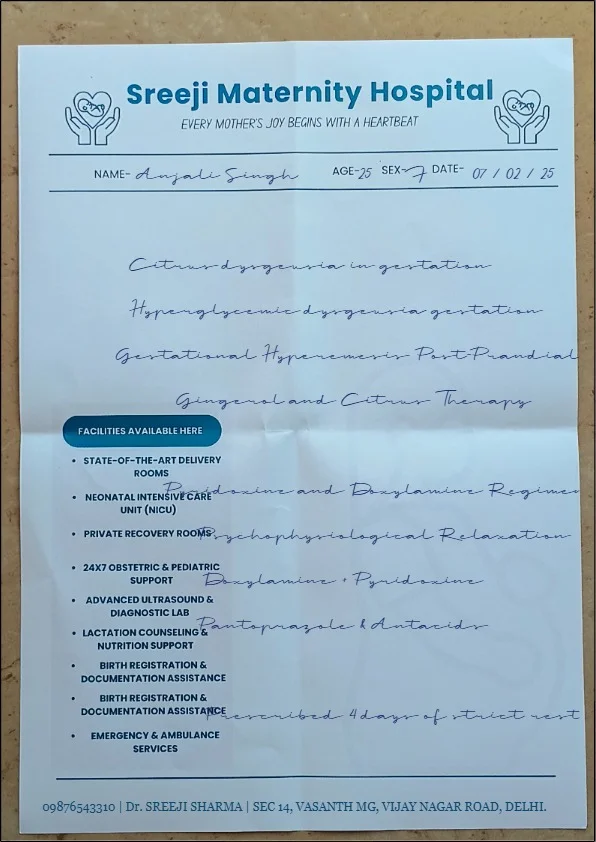 Sreeji Maternity Hospital
EVERY MOTHER'S JOY BEGINS WITH A HEARTBEAT
NAME- Anjali Singh AGE-25 SEX-F DATE- 07 / 02 / 25
Citrus dysgeusia in gestation
Hyperglycemic dysgeusia gestation
Gestational Hyperemesis Post-Prandial
Gingerol and Citrus Therapy
FACILITIES AVAILABLE HERE
• STATE-OF-THE-ART DELIVERY
ROOMS
Pyridoxine and Doxylamine Regimen
• NEONATAL INTENSIVE CARE
UNIT (NICU)
• PRIVATE RECOVERY ROOMS
Psychophysiological Relaxation
• 24X7 OBSTETRIC & PEDIATRIC
SUPPORT
Doxylamine + Pyridoxine
• ADVANCED ULTRASOUND &
DIAGNOSTIC LAB
Pantoprazole & Antacids
• LACTATION COUNSELING &
NUTRITION SUPPORT
• BIRTH REGISTRATION &
DOCUMENTATION ASSISTANCE
• BIRTH REGISTRATION &
DOCUMENTATION ASSISTANCE
Prescribed 4days of strict rest
• EMERGENCY & AMBULANCE
SERVICES
09876543310 | Dr. SREEJI SHARMA | SEC 14, VASANTH MG, VIJAY NAGAR ROAD, DELHI.